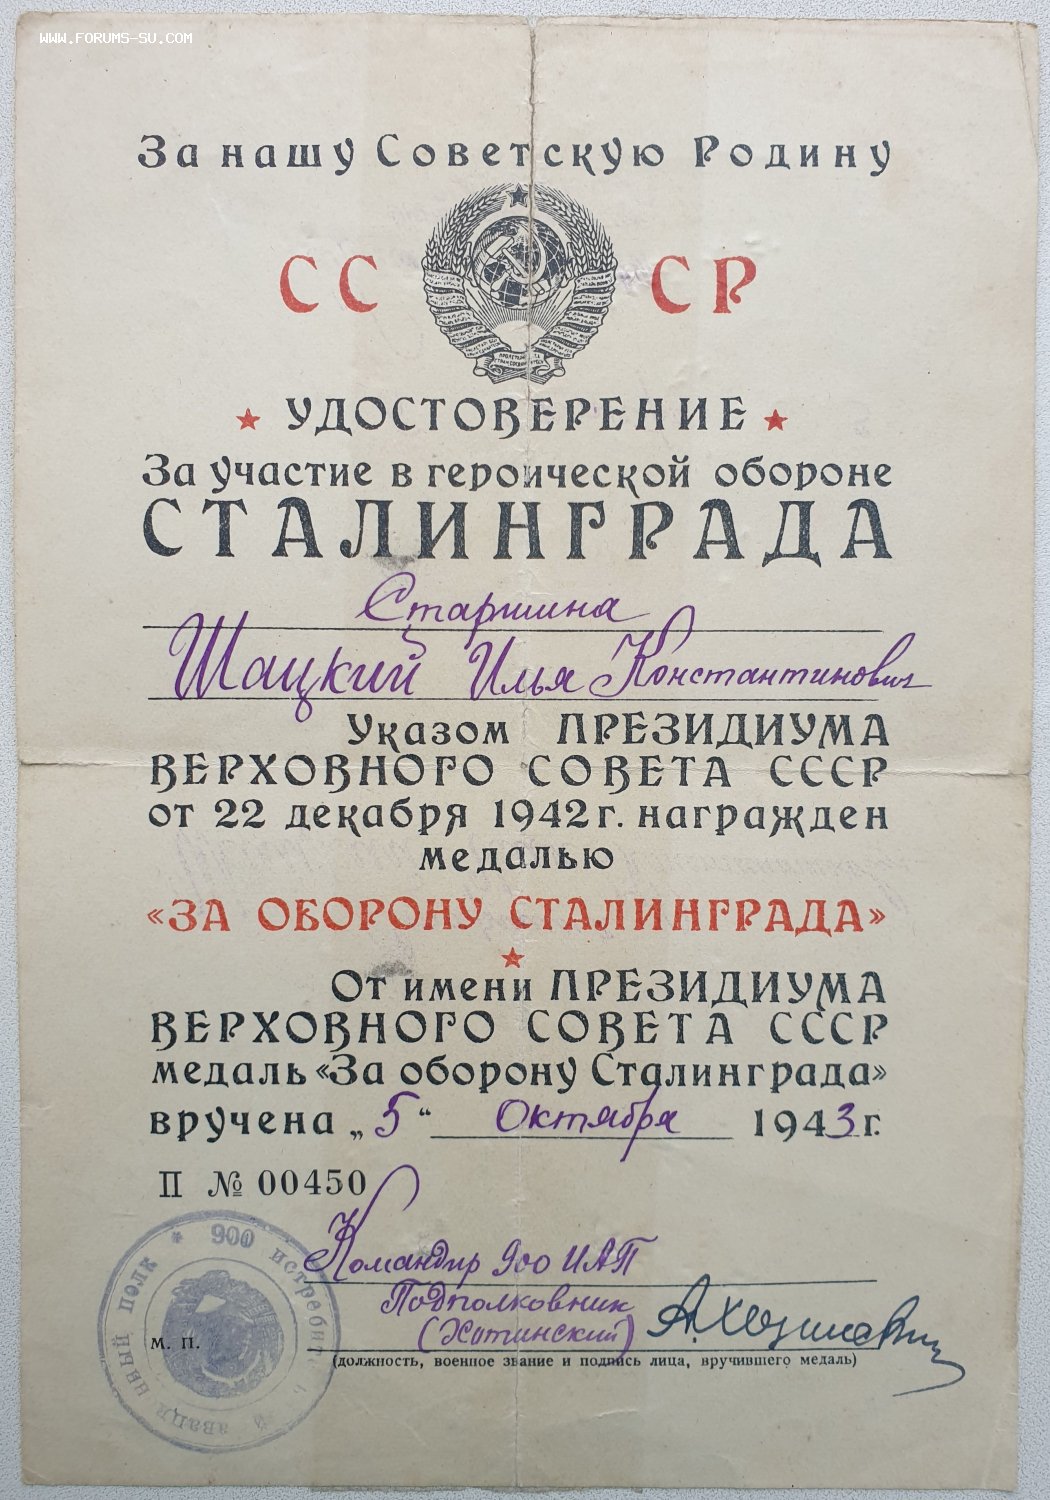 www.forums-su.com
За нашу Советскую Родину
СССР
УДОСТОВЕРЕНИЕ
За участие в героической обороне
СТАЛИНГРАДА
Старшина
Шацкий Илья Константинович
Указом ПРЕЗИДИУМА
ВЕРХОВНОГО СОВЕТА СССР
от 22 декабря 1942 г. награжден
медалью
«ЗА ОБОРОНУ СТАЛИНГРАДА»
От имени ПРЕЗИДИУМА
ВЕРХОВНОГО СОВЕТА СССР
медаль «За оборону Сталинграда»
вручена „5“ Октября 1943 г.
П № 00450
Командир 900 ИАП
Подполковник
(Хотинский)
(должность, военное звание и подпись лица, вручившего медаль)
М. П.
900 истребит
ный полк